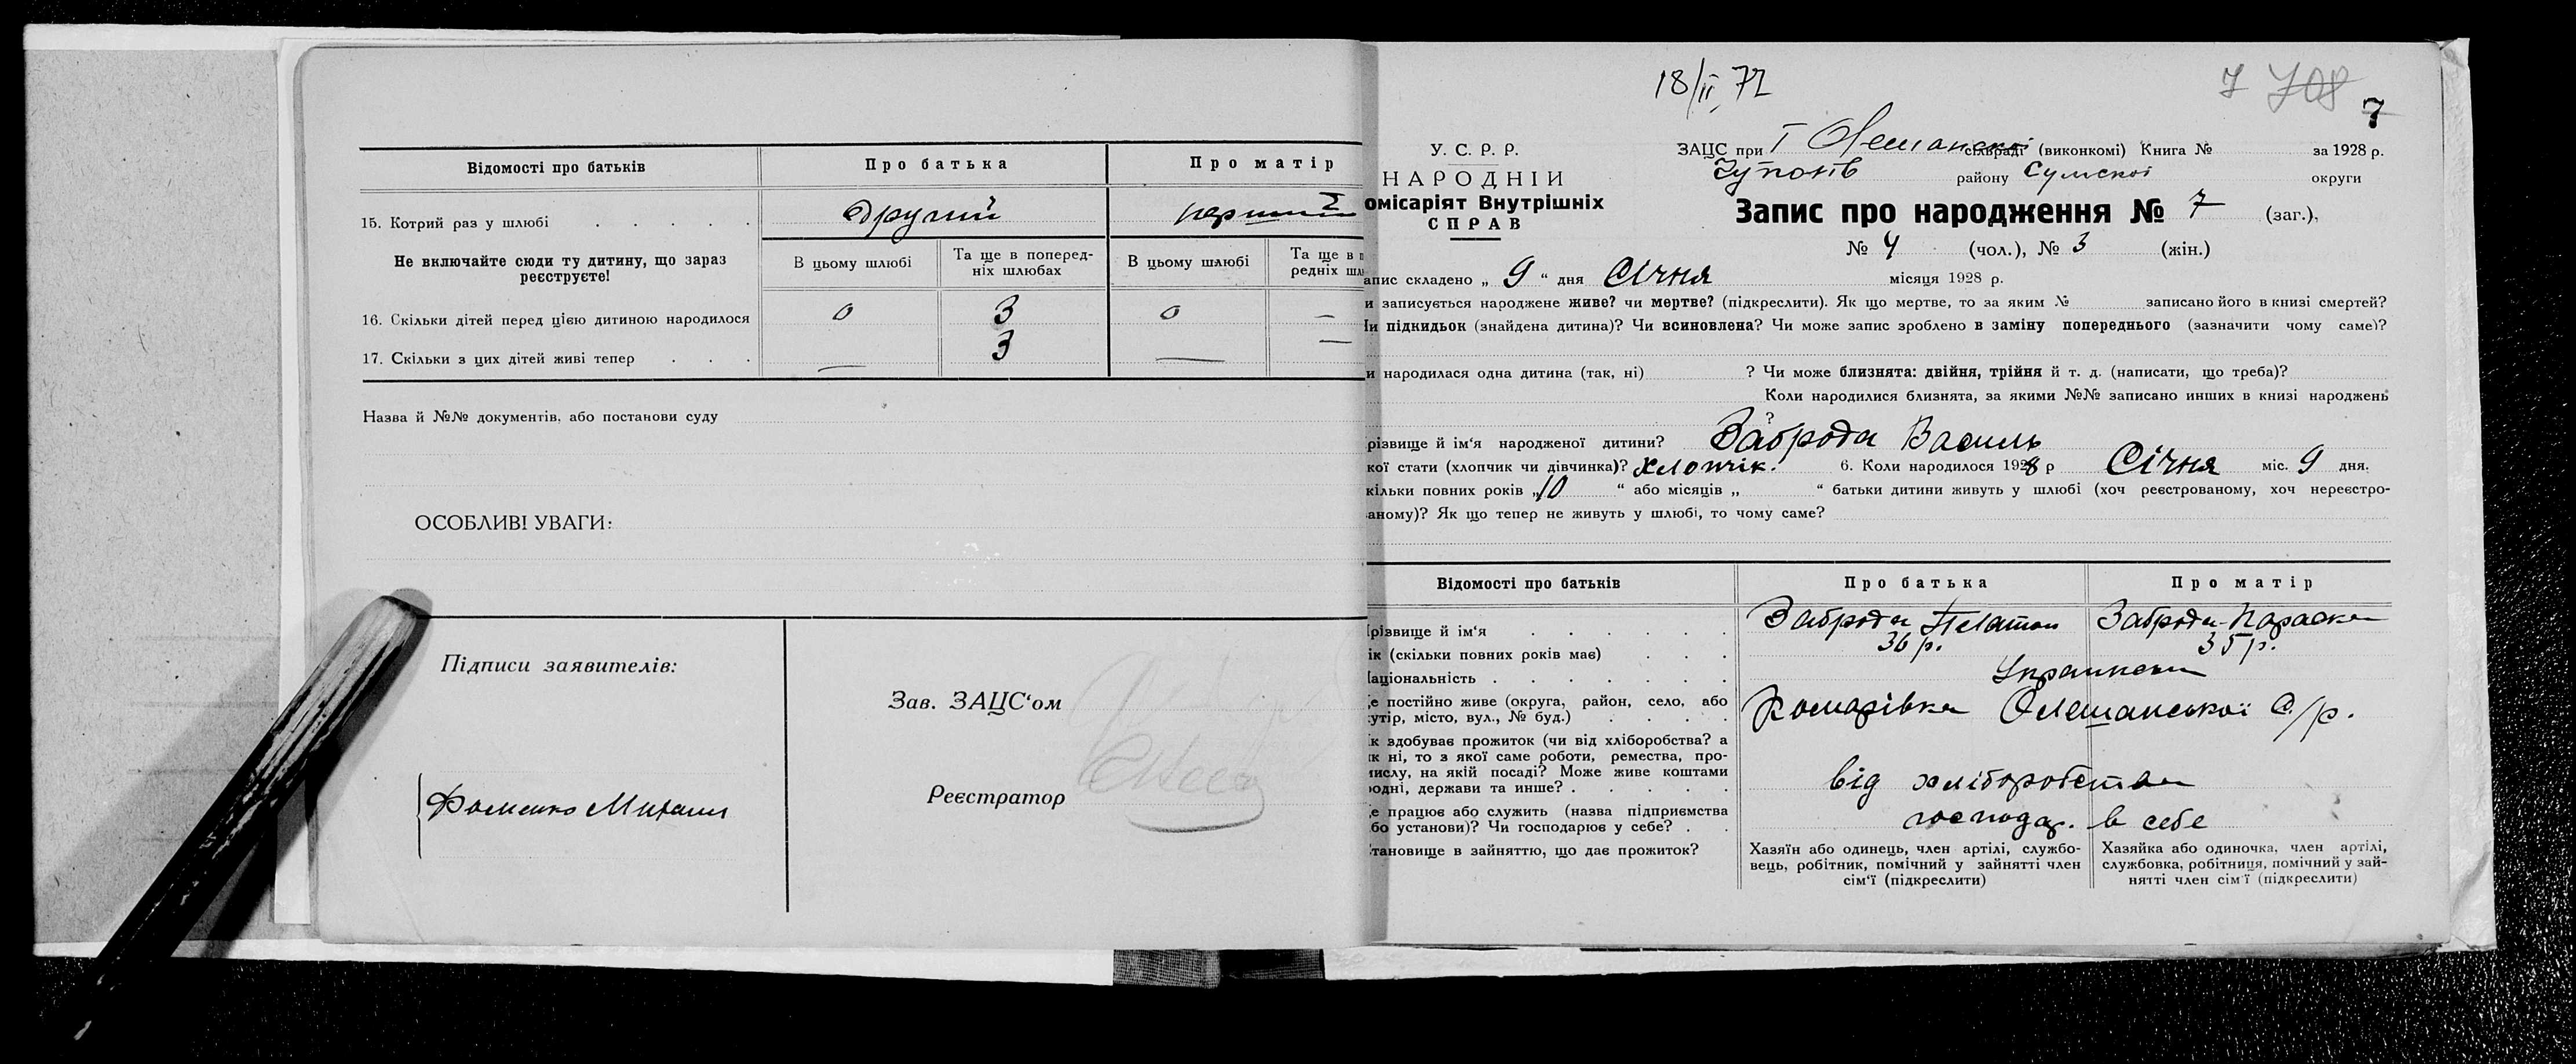 Відомості про батьків Про батька Про матір
15. Котрий раз у шлюбі . . . . . другий первший
Не включайте сюди ту дитину, що зараз реєструєте!
В цьому шлюбі Та ще в поперед-ніх шлюбах В цьому шлюбі Та ще в п редніх шл
16. Скільки дітей перед цією дитиною народилося 0 3 0 —
17. Скільки з цих дітей живі тепер . . . — 3 — —
Назва й №№ документів, або постанови суду
ОСОБЛИВІ УВАГИ:
Підписи заявителів:
Зав. ЗАЦС'ом
Фоменко Михаил
Реєстратор
18/II 72
7 708
7
У. С. Р. Р.
НАРОДНІЙ
омісаріят Внутрішніх
СПРАВ
ЗАЦС при І Олешанскі сільраді (виконкомі) Книга № за 1928 р.
району Сумскої округи
Запис про народження № 7 (заг.),
№ 4 (чол.), № 3 (жін.)
апис складено „ 9 “ дня Січня місяця 1928 р.
и записується народжене живе? чи мертве? (підкреслити). Як що мертве, то за яким № записано його в книзі смертей?
Чи підкидьок (знайдена дитина)? Чи всиновлена? Чи може запис зроблено в заміну попереднього (зазначити чому саме)?
и народилася одна дитина (так, ні) ? Чи може близнята: двійня, трійня й т. д. (написати, що треба)?
Коли народилися близнята, за якими №№ записано инших в книзі народжень
?
різвище й ім'я народженої дитини? Заброда Василь
кої стати (хлопчик чи дівчинка)? Хлопчік. 6. Коли народилося 1928 р Січня міс. 9 дня.
кільки повних років „10 “ або місяців „ “ батьки дитини живуть у шлюбі (хоч реєстрованому, хоч нереєстро-
аному)? Як що тепер не живуть у шлюбі, то чому саме?
Відомості про батьків Про батька Про матір
різвище й ім'я . . . . . . Заброда Платон Заброда Параска
ік (скільки повних років має) . . . 36 р. 35 р.
аціональність . . . . . . . Украинська
е постійно живе (округа, район, село, або
утір, місто, вул., № буд.) . . . . Комарівка Олешанської с/р.
к здобуває прожиток (чи від хліборобства? а
к ні, то з якої саме роботи, ремества, про-
ислу, на якій посаді? Може живе коштами
одні, держави та инше? . . . . . від хліборобства
е працює або служить (назва підприємства
бо установи)? Чи господарює у себе? . . господар. в себе
тановище в зайняттю, що дає прожиток?
Хазяїн або одинець, член артілі, службо-
вець, робітник, помічний у зайнятті член
сім'ї (підкреслити)
Хазяйка або одиночка, член артілі,
службовка, робітниця, помічний у зай-
нятті член сім'ї (підкреслити)